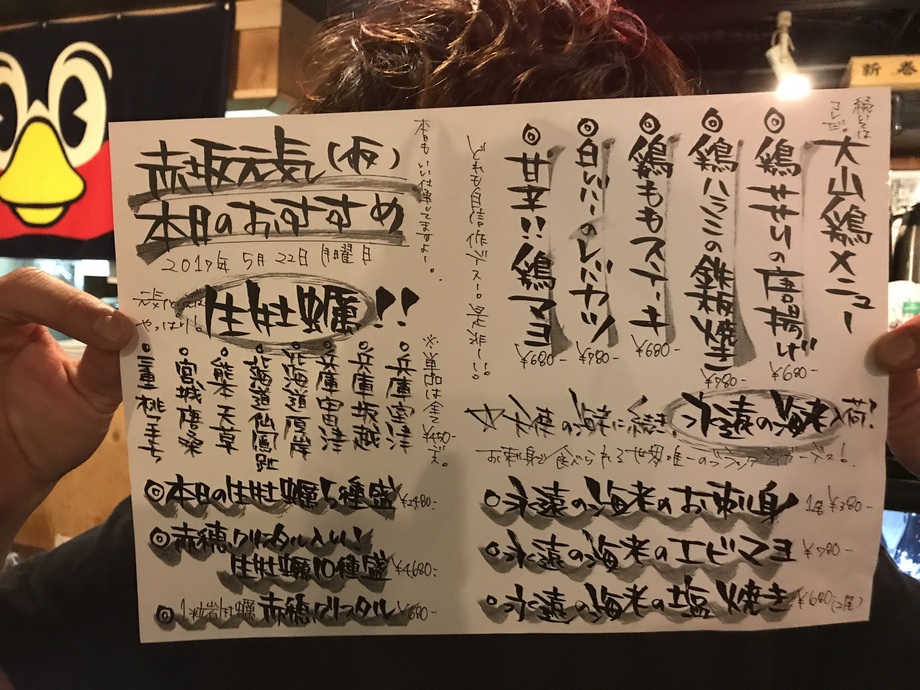 赤坂元気(仮)
本日のおすすめ
2017年5月22日月曜日
本日もいい仕事してますよ〜。
元気といえば
やっぱり
生牡蠣!!
※単品は全て¥450-です。
○兵庫室津
○兵庫坂越
○兵庫
○北海道厚岸
○北海道仙鳳趾
○熊本天草
○宮城唐桑
○三重桃こまち
◎本日の生牡蠣5種盛 ¥2480-
◎赤穂クリスタル入り!
生牡蠣10種盛 ¥4680-
◎1粒岩牡蠣赤穂クリスタル ¥680-
続いては
コレだ。
大山鶏メニュー
◎鶏せせりの唐揚げ ¥680-
◎鶏ハラミの鉄板焼き ¥780-
◎鶏ももステーキ ¥680-
◎白いレバカツ ¥780-
◎甘辛!!鶏マヨ ¥680-
どれも自信作デス〜。是非〜!!
天使の海老に続き、永遠の海老入荷!
お刺身で食べられる世界唯一のブラックタイガーデス!
◎永遠の海老のお刺身 1尾¥380-
◎永遠の海老のエビマヨ ¥780-
◎永遠の海老の塩焼き ¥680-(2尾)
新